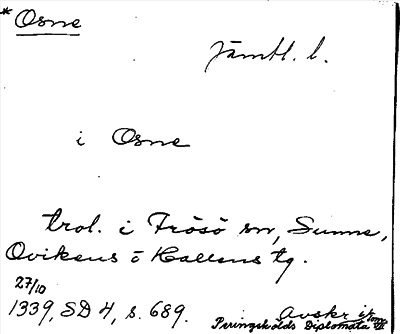 * Osne
Jämtl. l.
i Osne
trol. i Frösö sn, Sunne,
Ovikens o Hallens tg.
27/10
1339, SD 4, s. 689.
Avskr i
Peringskölds Diplomata